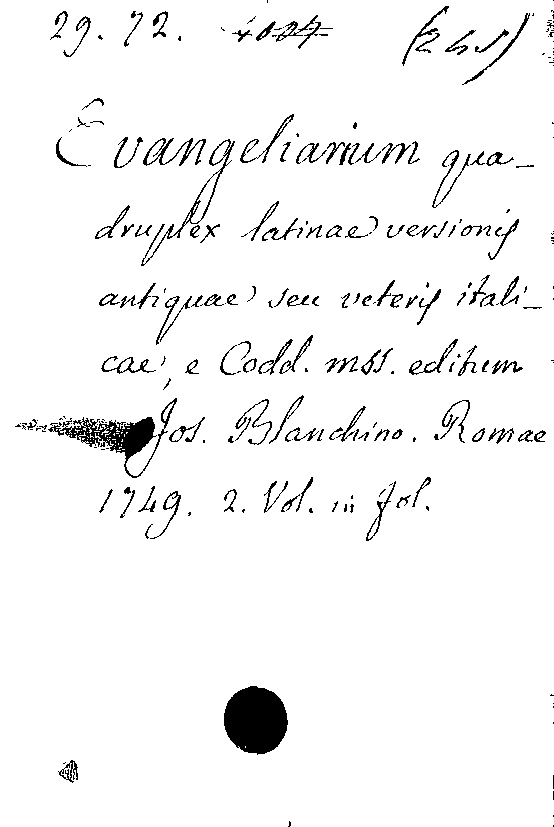 29. 72. (245)
Evangeliarium qua-
druplex latinae versionis
antiquae seu veteris itali-
cae, e Codd. mss. editum
Jos. Blanchino. Romae
1749. 2. Vol. in fol.